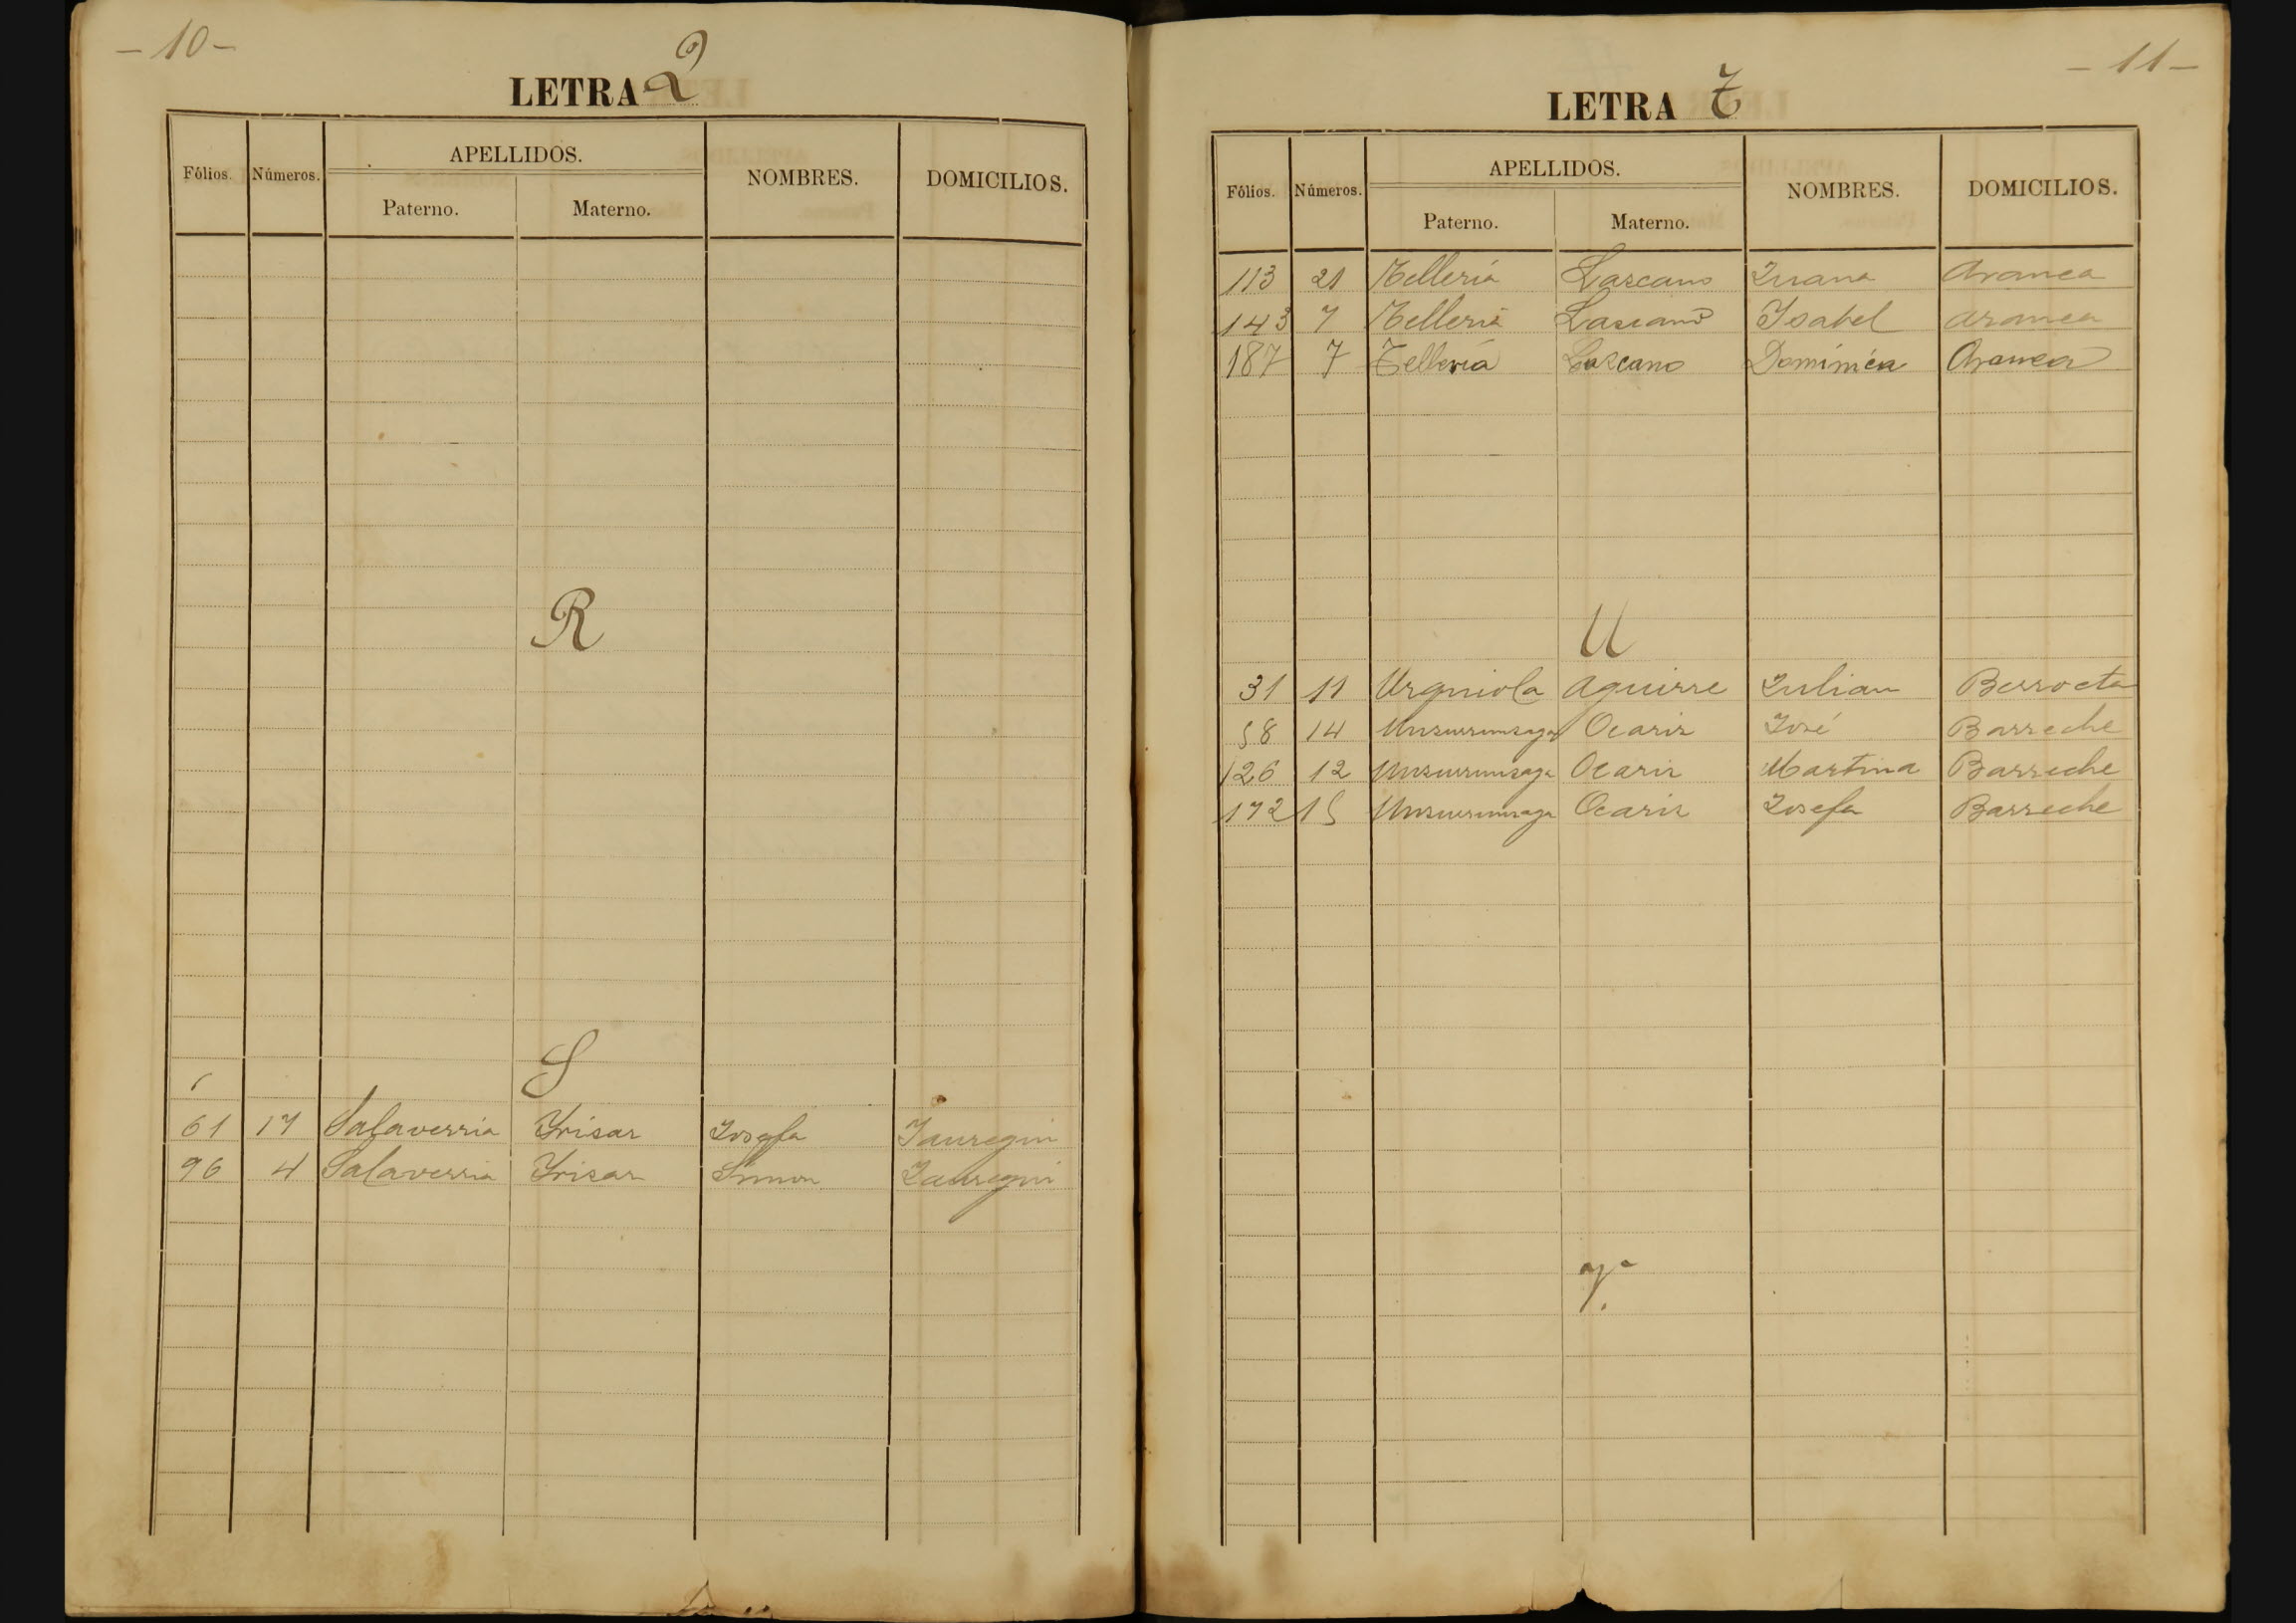 - 10 -
LETRA Q
Fólios. Números. APELLIDOS. NOMBRES. DOMICILIOS.
Paterno. Materno.
R
S
61 17 Salaverria Yrisar Josefa Jauregui
96 4 Salaverria Yrisar Simon Jauregui
- 11 -
LETRA T
Fólios. Números. APELLIDOS. NOMBRES. DOMICILIOS.
Paterno. Materno.
113 21 Telleria Lazcano Juana Aranea
143 7 Telleria Lascano Ysabel Aranea
187 7 Telleria Lazcano Dominica Aranea
U
31 11 Urquiola Aguirre Julian Berroeta
58 14 Unsurrunsaga Ocariz José Barreche
126 12 Unsurrunsaga Ocariz Martina Barreche
172 15 Unsurrunsaga Ocariz Josefa Barreche